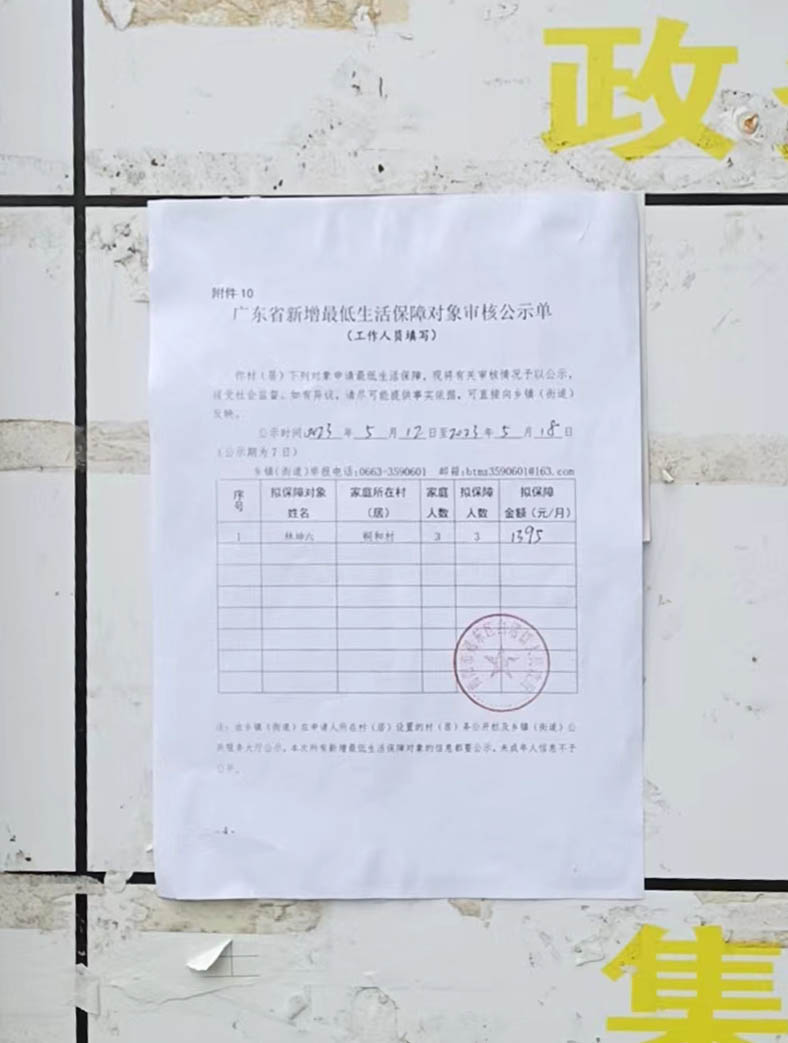 政
附件 10
广东省新增最低生活保障对象审核公示单
(工作人员填写)
你村(居)下列对象申请最低生活保障,现将有关审核情况予以公示,
接受社会监督。如有异议,请尽可能提供事实依据,可直接向乡镇(街道)
反映。
公示时间2023年5月12日至2023年5月18日
(公示期为7日)
乡镇(街道)举报电话:0663-3590601 邮箱:btmz3590601@163.com
序号 拟保障对象姓名 家庭所在村(居) 家庭人数 拟保障人数 拟保障金额(元/月)
1 林坤六 桐和村 3 3 1395
注:由乡镇(街道)在申请人所在村(居)设置的村(居)务公开栏及乡镇(街道)公
共服务大厅公示。本次所有新增最低生活保障对象的信息都要公示,未成年人信息不予
公开。
-4-
集